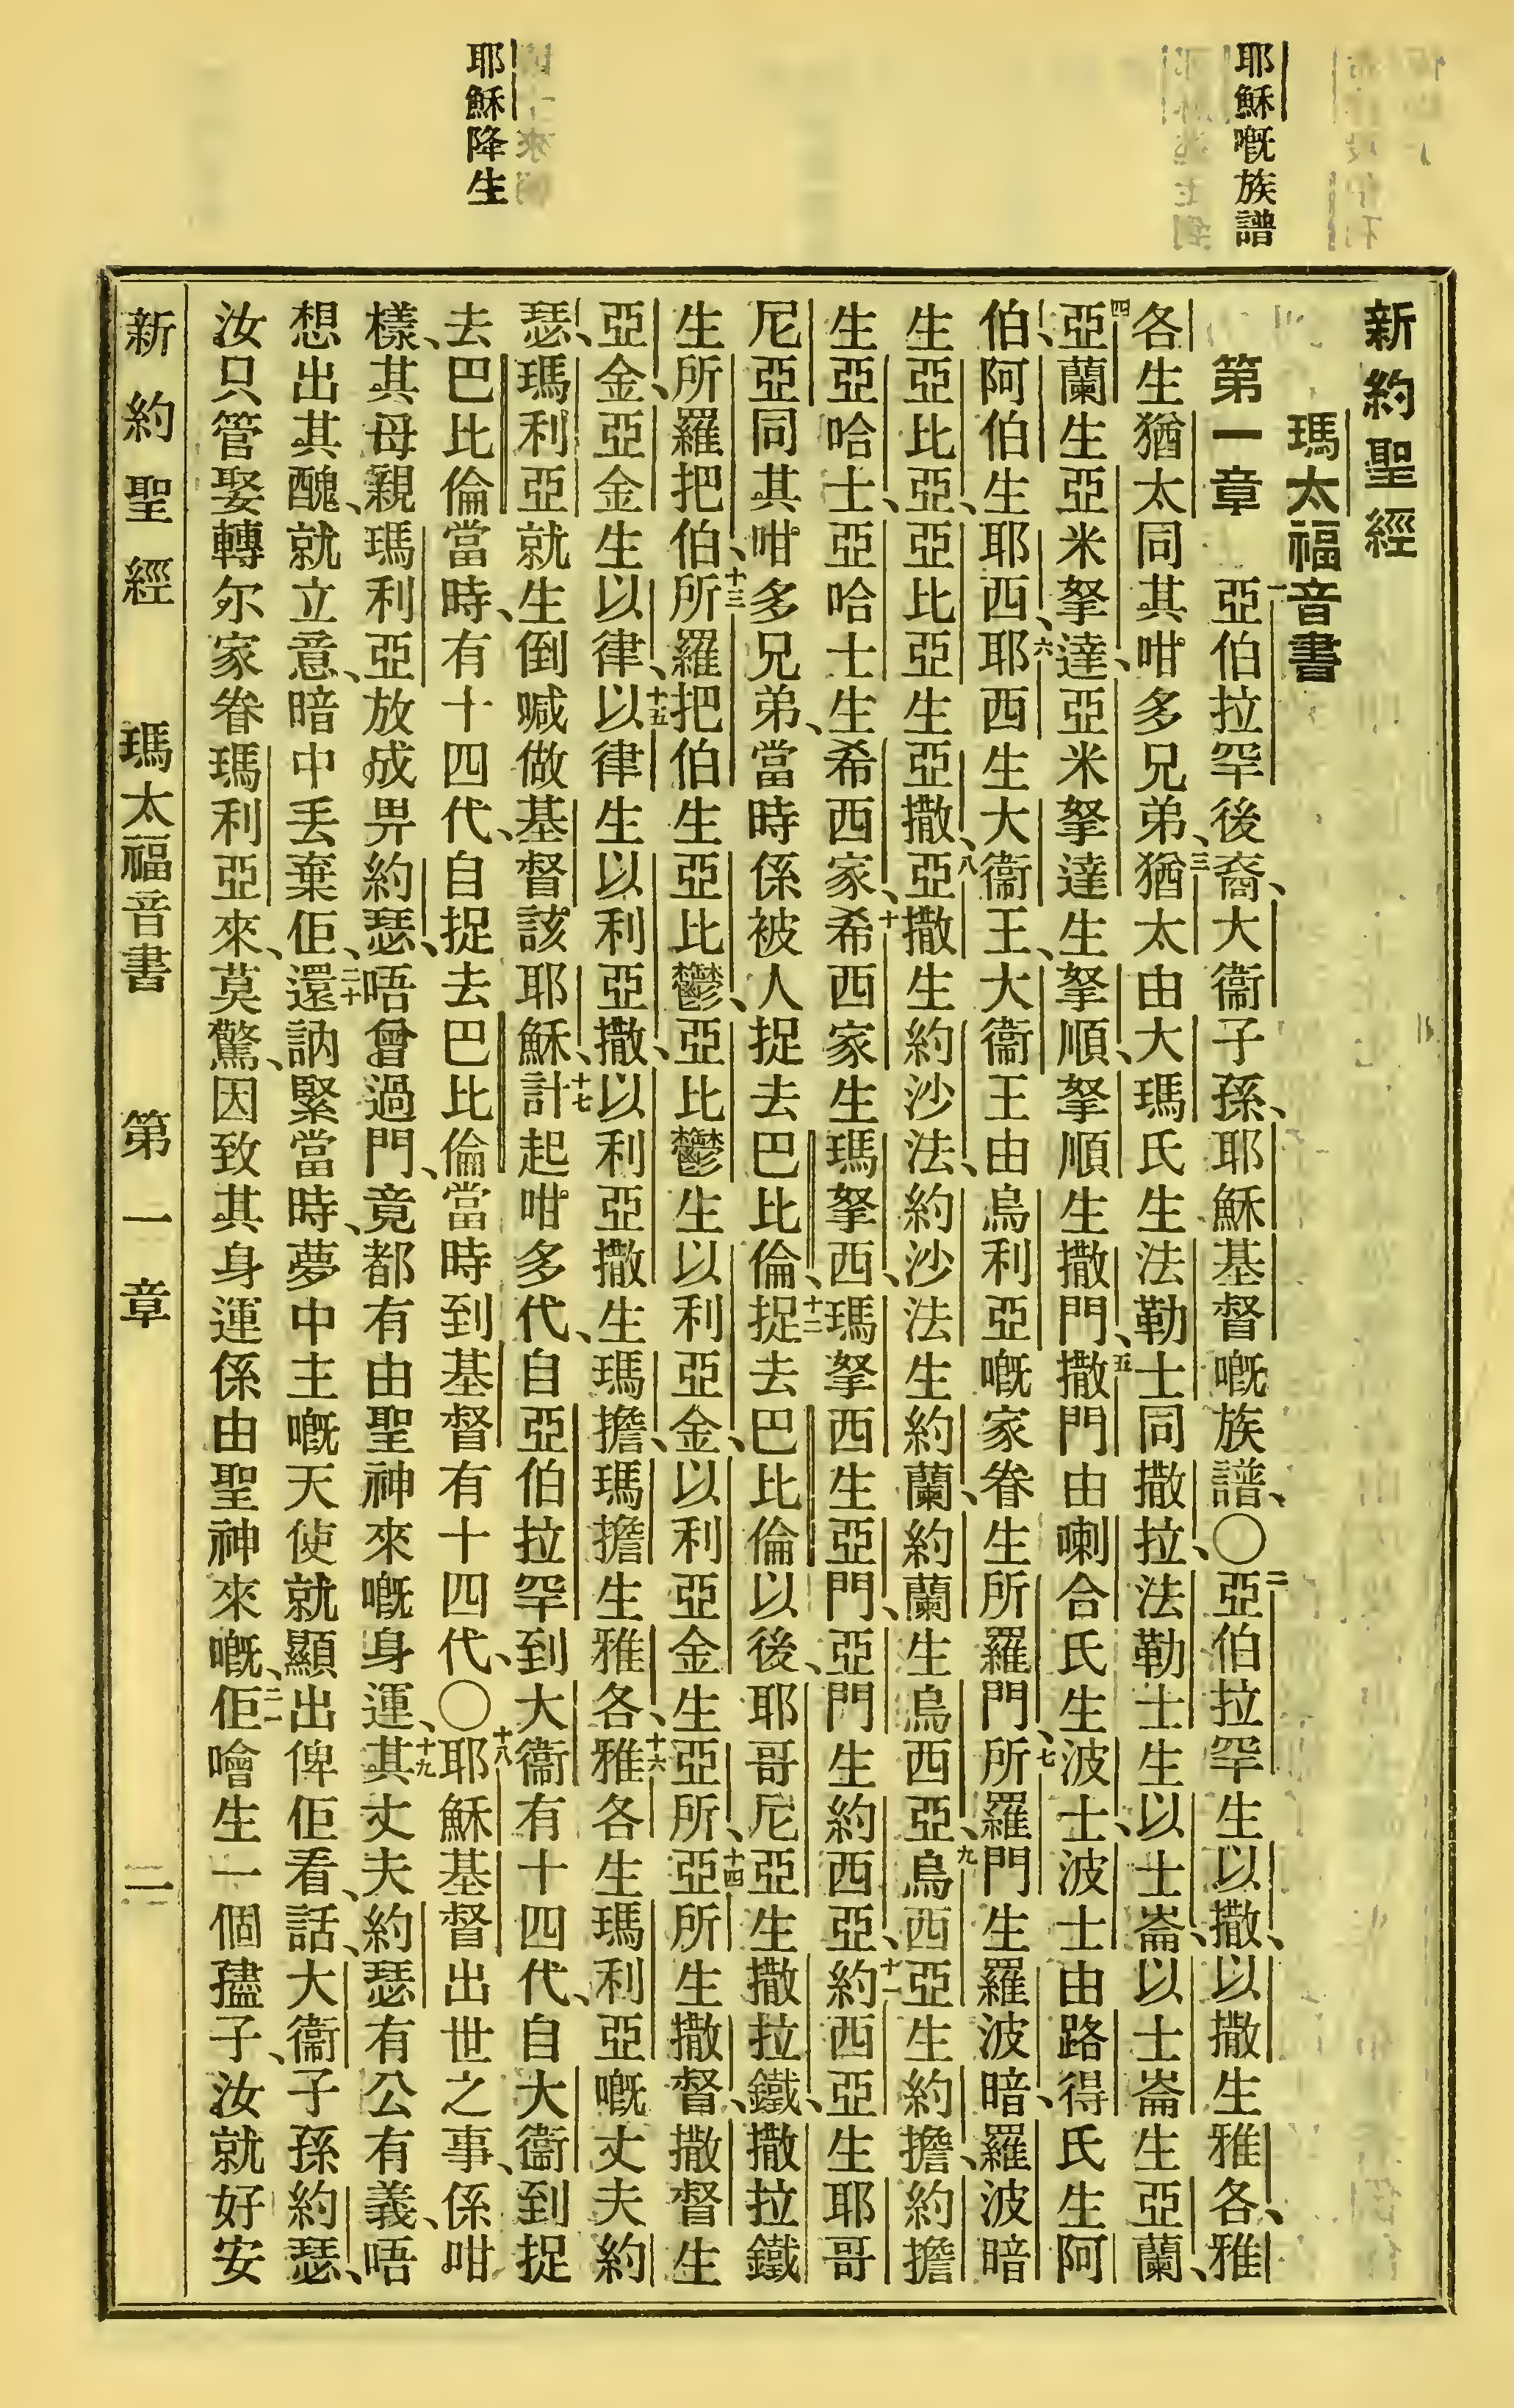 耶穌嘅族譜
耶穌降生
新約聖經
瑪太福音書
第一章 一亞伯拉罕後裔、大衞子孫、耶穌基督嘅族譜、〇二亞伯拉罕生以撒、以撒生雅各、雅
各生猶太同其咁多兄弟、三猶太由大瑪氏生法勒士同撒拉、法勒士生以士崙、以士崙生亞蘭、
四亞蘭生亞米拏達、亞米拏達生拏順、拏順生撒門、五撒門由喇合氏生波士、波士由路得氏生阿
伯、阿伯生耶西、六耶西生大衞王、大衞王由烏利亞嘅家眷生所羅門、七所羅門生羅波暗、羅波暗
生亞比亞、亞比亞生亞撒、八亞撒生約沙法、約沙法生約蘭、約蘭生烏西亞、九烏西亞生約擔、約擔
生亞哈士、亞哈士生希西家、十希西家生瑪拏西、瑪拏西生亞門、亞門生約西亞、十一約西亞生耶哥
尼亞同其咁多兄弟、當時係被人捉去巴比倫、十二捉去巴比倫以後、耶哥尼亞生撒拉鐵、撒拉鐵
生所羅把伯、十三所羅把伯生亞比鬱、亞比鬱生以利亞金、以利亞金生亞所、十四亞所生撒督、撒督生
亞金、亞金生以律、十五以律生以利亞撒、以利亞撒生瑪擔、瑪擔生雅各、十六雅各生瑪利亞嘅丈夫約
瑟、瑪利亞就生倒喊做基督該耶穌、十七計起咁多代、自亞伯拉罕到大衞有十四代、自大衞到捉
去巴比倫當時、有十四代、自捉去巴比倫當時到基督有十四代、〇十八耶穌基督出世之事、係咁
樣、其母親瑪利亞放成畀約瑟、唔曾過門、竟都有由聖神來嘅身運、十九其丈夫約瑟有公有義、唔
想出其醜、就立意、暗中丢棄佢、二十還訥緊當時、夢中主嘅天使就顯出俾佢看、話、大衞子孫約瑟、
汝只管娶轉尔家眷瑪利亞來、莫驚、因致其身運係由聖神來嘅、二一佢噲生一個孻子、汝就好安
新約聖經 瑪太福音書 第一章 二